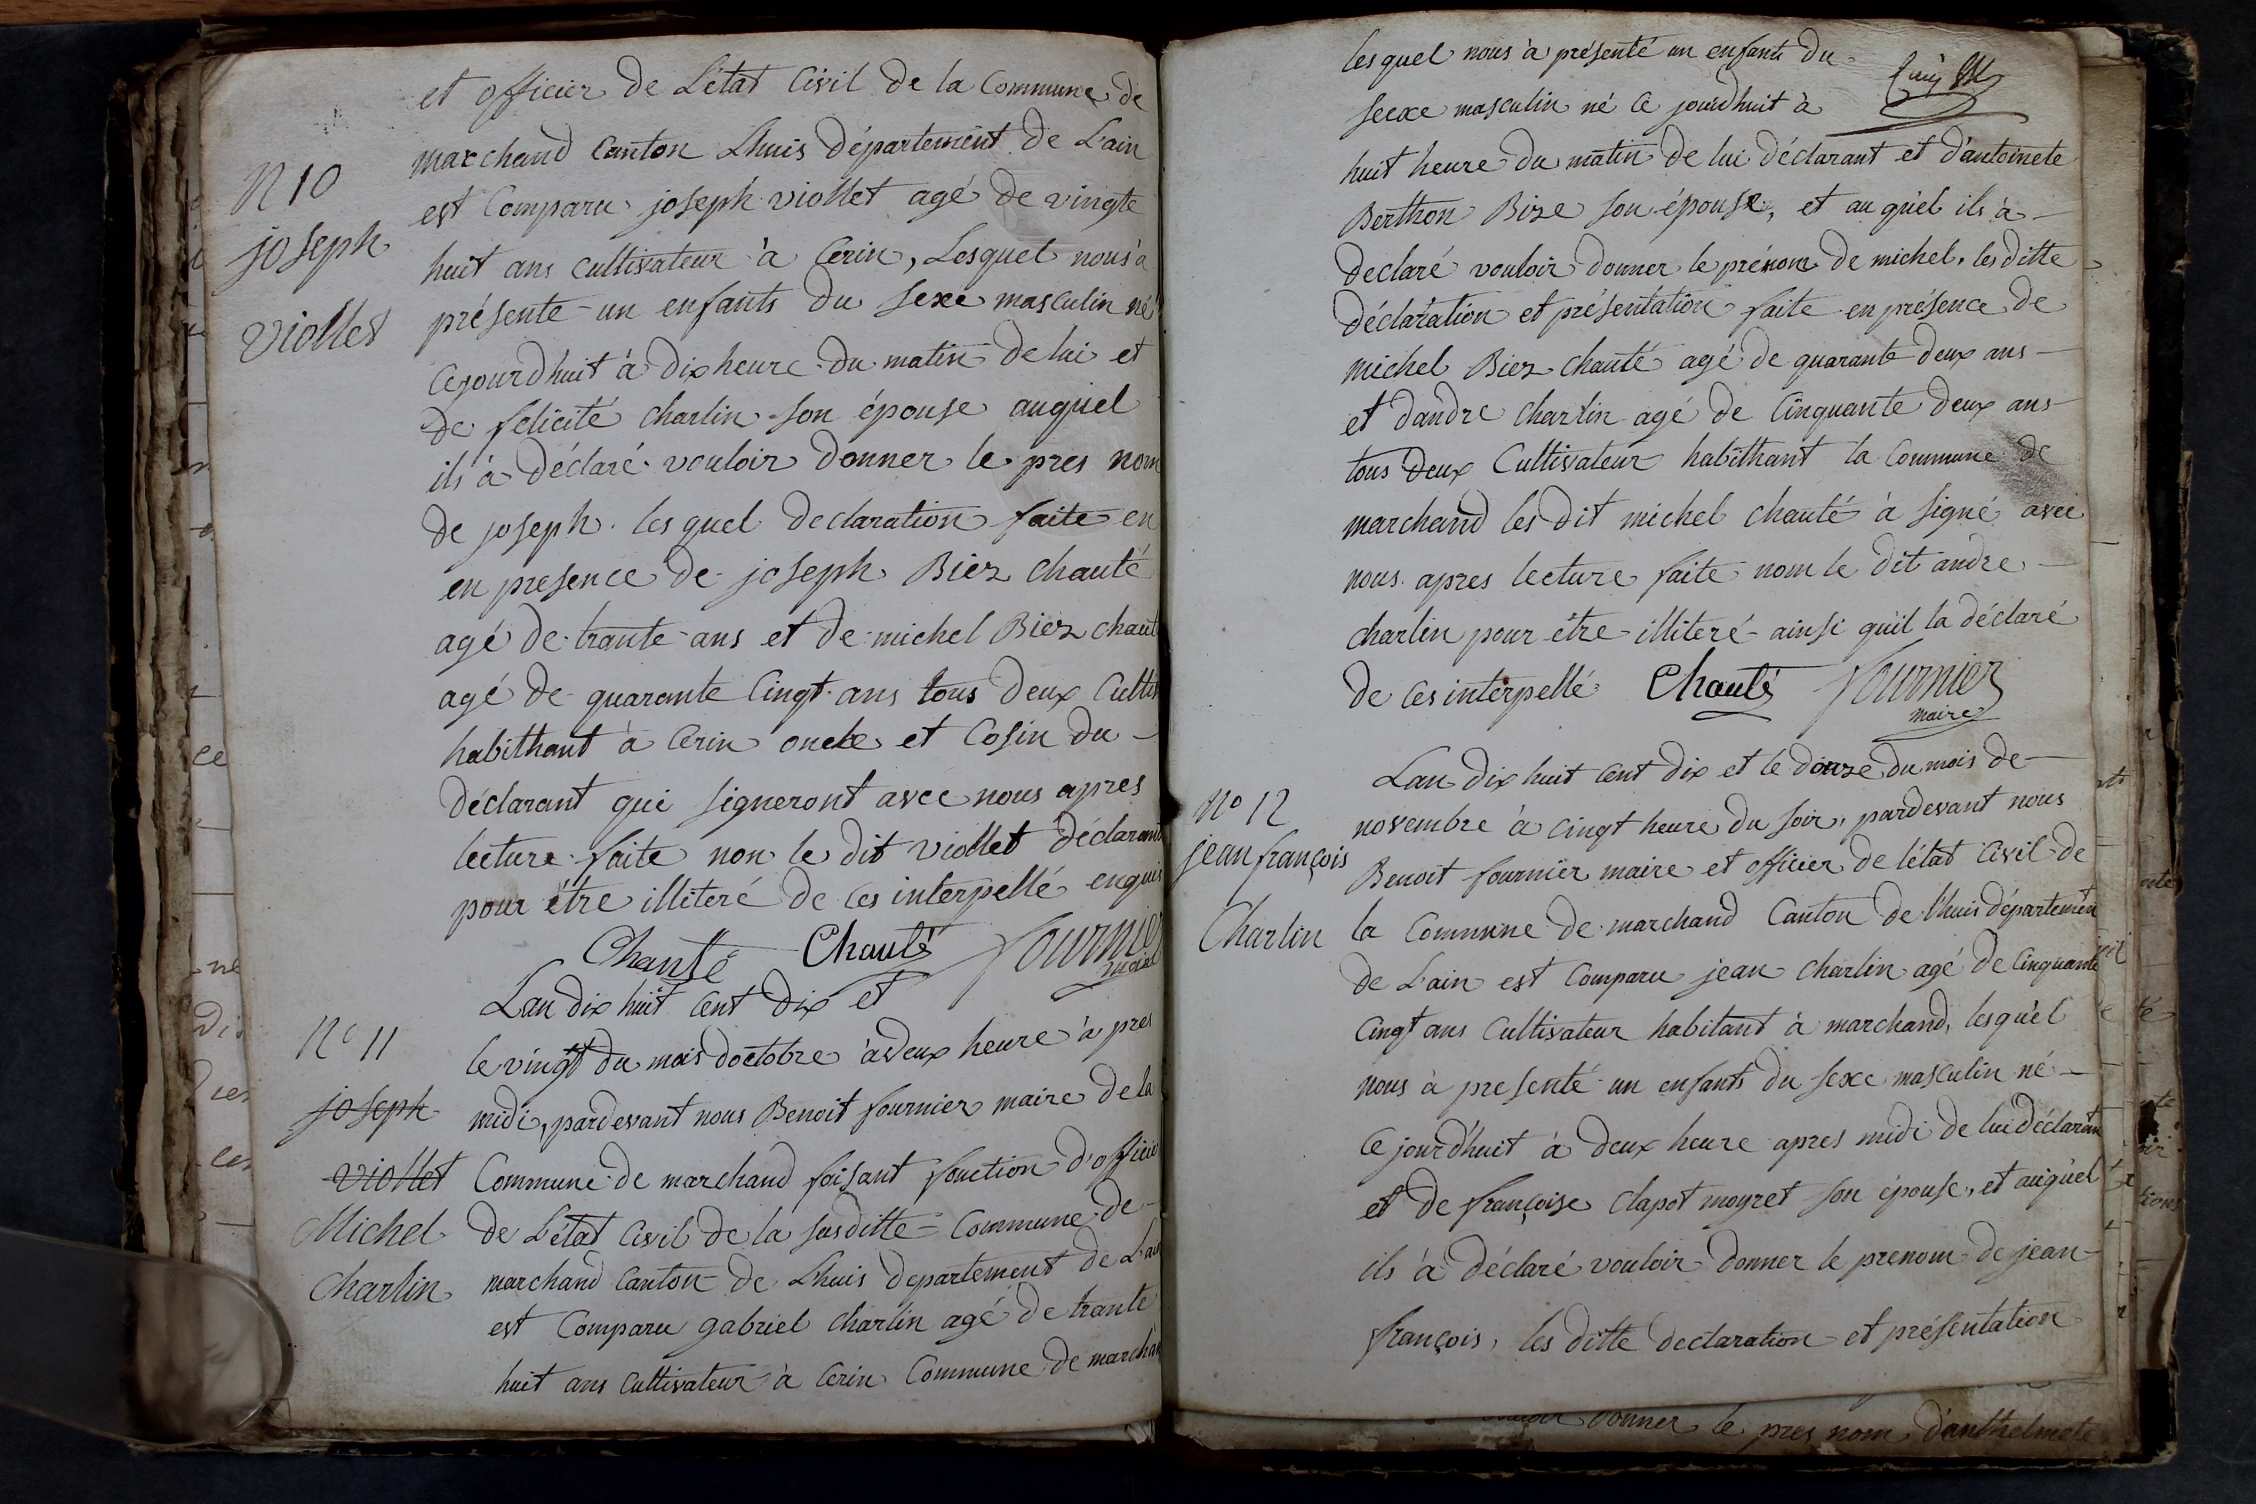 et officier de L'état Civil de la Commune de
N 10
marchand Canton Lhuis Département de L'ain
joseph
viollet
est Comparu joseph viollet agé de vingte
huit ans cultivateur à Cerin, Lesquel nous à
présente un enfants du sexe masculin né
Cejourdhuit à dix heure du matin de lui et
de felicité charlin son épouse auquel
ils à déclaré vouloir donner le pres nom
de joseph. les quel declaration faite en
en presence de joseph Biez chauté
agé de trante ans et de michel Biez chaut
agé de quarante Cingt ans tous deux Cultiv
habithant à Cerin oncle et Cosin du
déclarant qui signeront avec nous apres
lecture faite non le dit viollet déclarant
pour être illiteré de ces interpellé enquis
Chanté Chauté fournier
maire
Lan dix huit Cent dix et
N° 11
joseph
viollet
Michel
Charlin
le vingt du mois doctobre à deux heure à pres
midi, pardevant nous Benoit fournier maire de la
Commune de marchand faisant fonction d'officie
de L'état Civil de la susditte Commune de
marchand Canton de Lhuis departement de L'ain
est Comparu gabriel charlin agé de trante
huit ans cultivateur à Cerin Commune de marchan
lesquel nous à présenté un enfants du
secxe masculin né ce jourdhuit à
huit heure du matin de lui déclarant et d'antoinete
Berthon Bize son épouse, et au quel ils à
declaré vouloir donner le prénom de michel, les ditte
déclaration et présentation faite en présence de
michel Biez chauté agé de quarante deux ans
et dandre charlin agé de Cinquante deux ans
tous deux Cultivateur habithant la Commune de
marchand les dit michel chauté à signé avec
nous apres lecture faite nom le dit andre
charlin pour être illiteré ainsi quil la déclaré
de ces interpellé Chauté fournier
maire
Lan dix huit cent dix et le douze du mois de
N° 12
jean françois
Charlin
novembre à cingt heure du soir, pardevant nous
Benoit fournier maire et officier de l'état Civil de
la Commune de marchand Canton de l'huis département
de L'ain est Comparu jean charlin agé de Cinquante
Cingt ans Cultivateur habitant à marchand, lesquel
nous à presenté un enfants du sexe masculin né
Ce jourd'huit à deux heure apres midi de lui déclarant
et de françoise clapot moyret son épouse, et auquel
ils à déclaré vouloir donner le prenom de jean
françois, les ditte declaration et présentation
donner le pres nom d'anthelmete